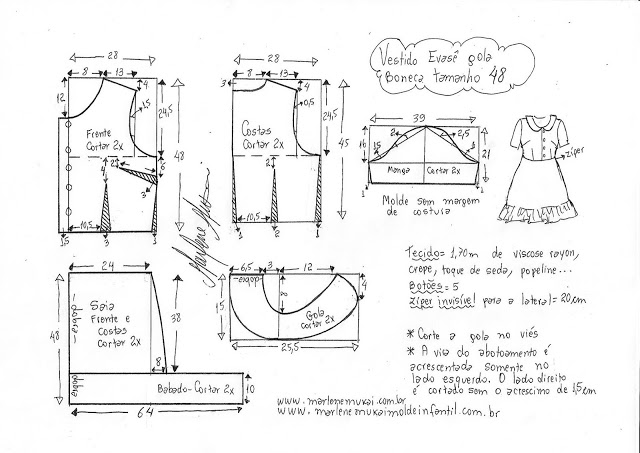 Vestido Evasê gola
Boneca tamanho 48
28
8
13
12
4
1,5
24,5
48
Frente
Cortar 2x
4
2
6
3
10,5
1,5
3
1
28
3
8
13
4
0,5
24,5
45
Costas
Cortar 2x
2
10,5
1
2
1
Marlene Mukai
39
16
15
2
2,5
21
Manga
Cortar 2x
1
1
Molde sem margem
de costura
zíper
24
48
-dobra-
Saia
Frente e
Costas
Cortar 2x
38
8
dobra
Babado-Cortar 2x
10
64
6,5
3
12
-dobra-
15
8
4
Gola
Cortar 2x
25,5
Tecido= 1,70m de viscose rayon,
crepe, toque de seda, popeline...
Botões= 5
Zíper invisível para a lateral= 20cm
* Corte a gola no viés
* A vista do abotoamento é
acrescentada somente no
lado esquerdo. O lado direito
é cortado sem o acrescimo de 1,5cm
www.marlenemukai.com.br
www.marlenemukaimoldeinfantil.com.br